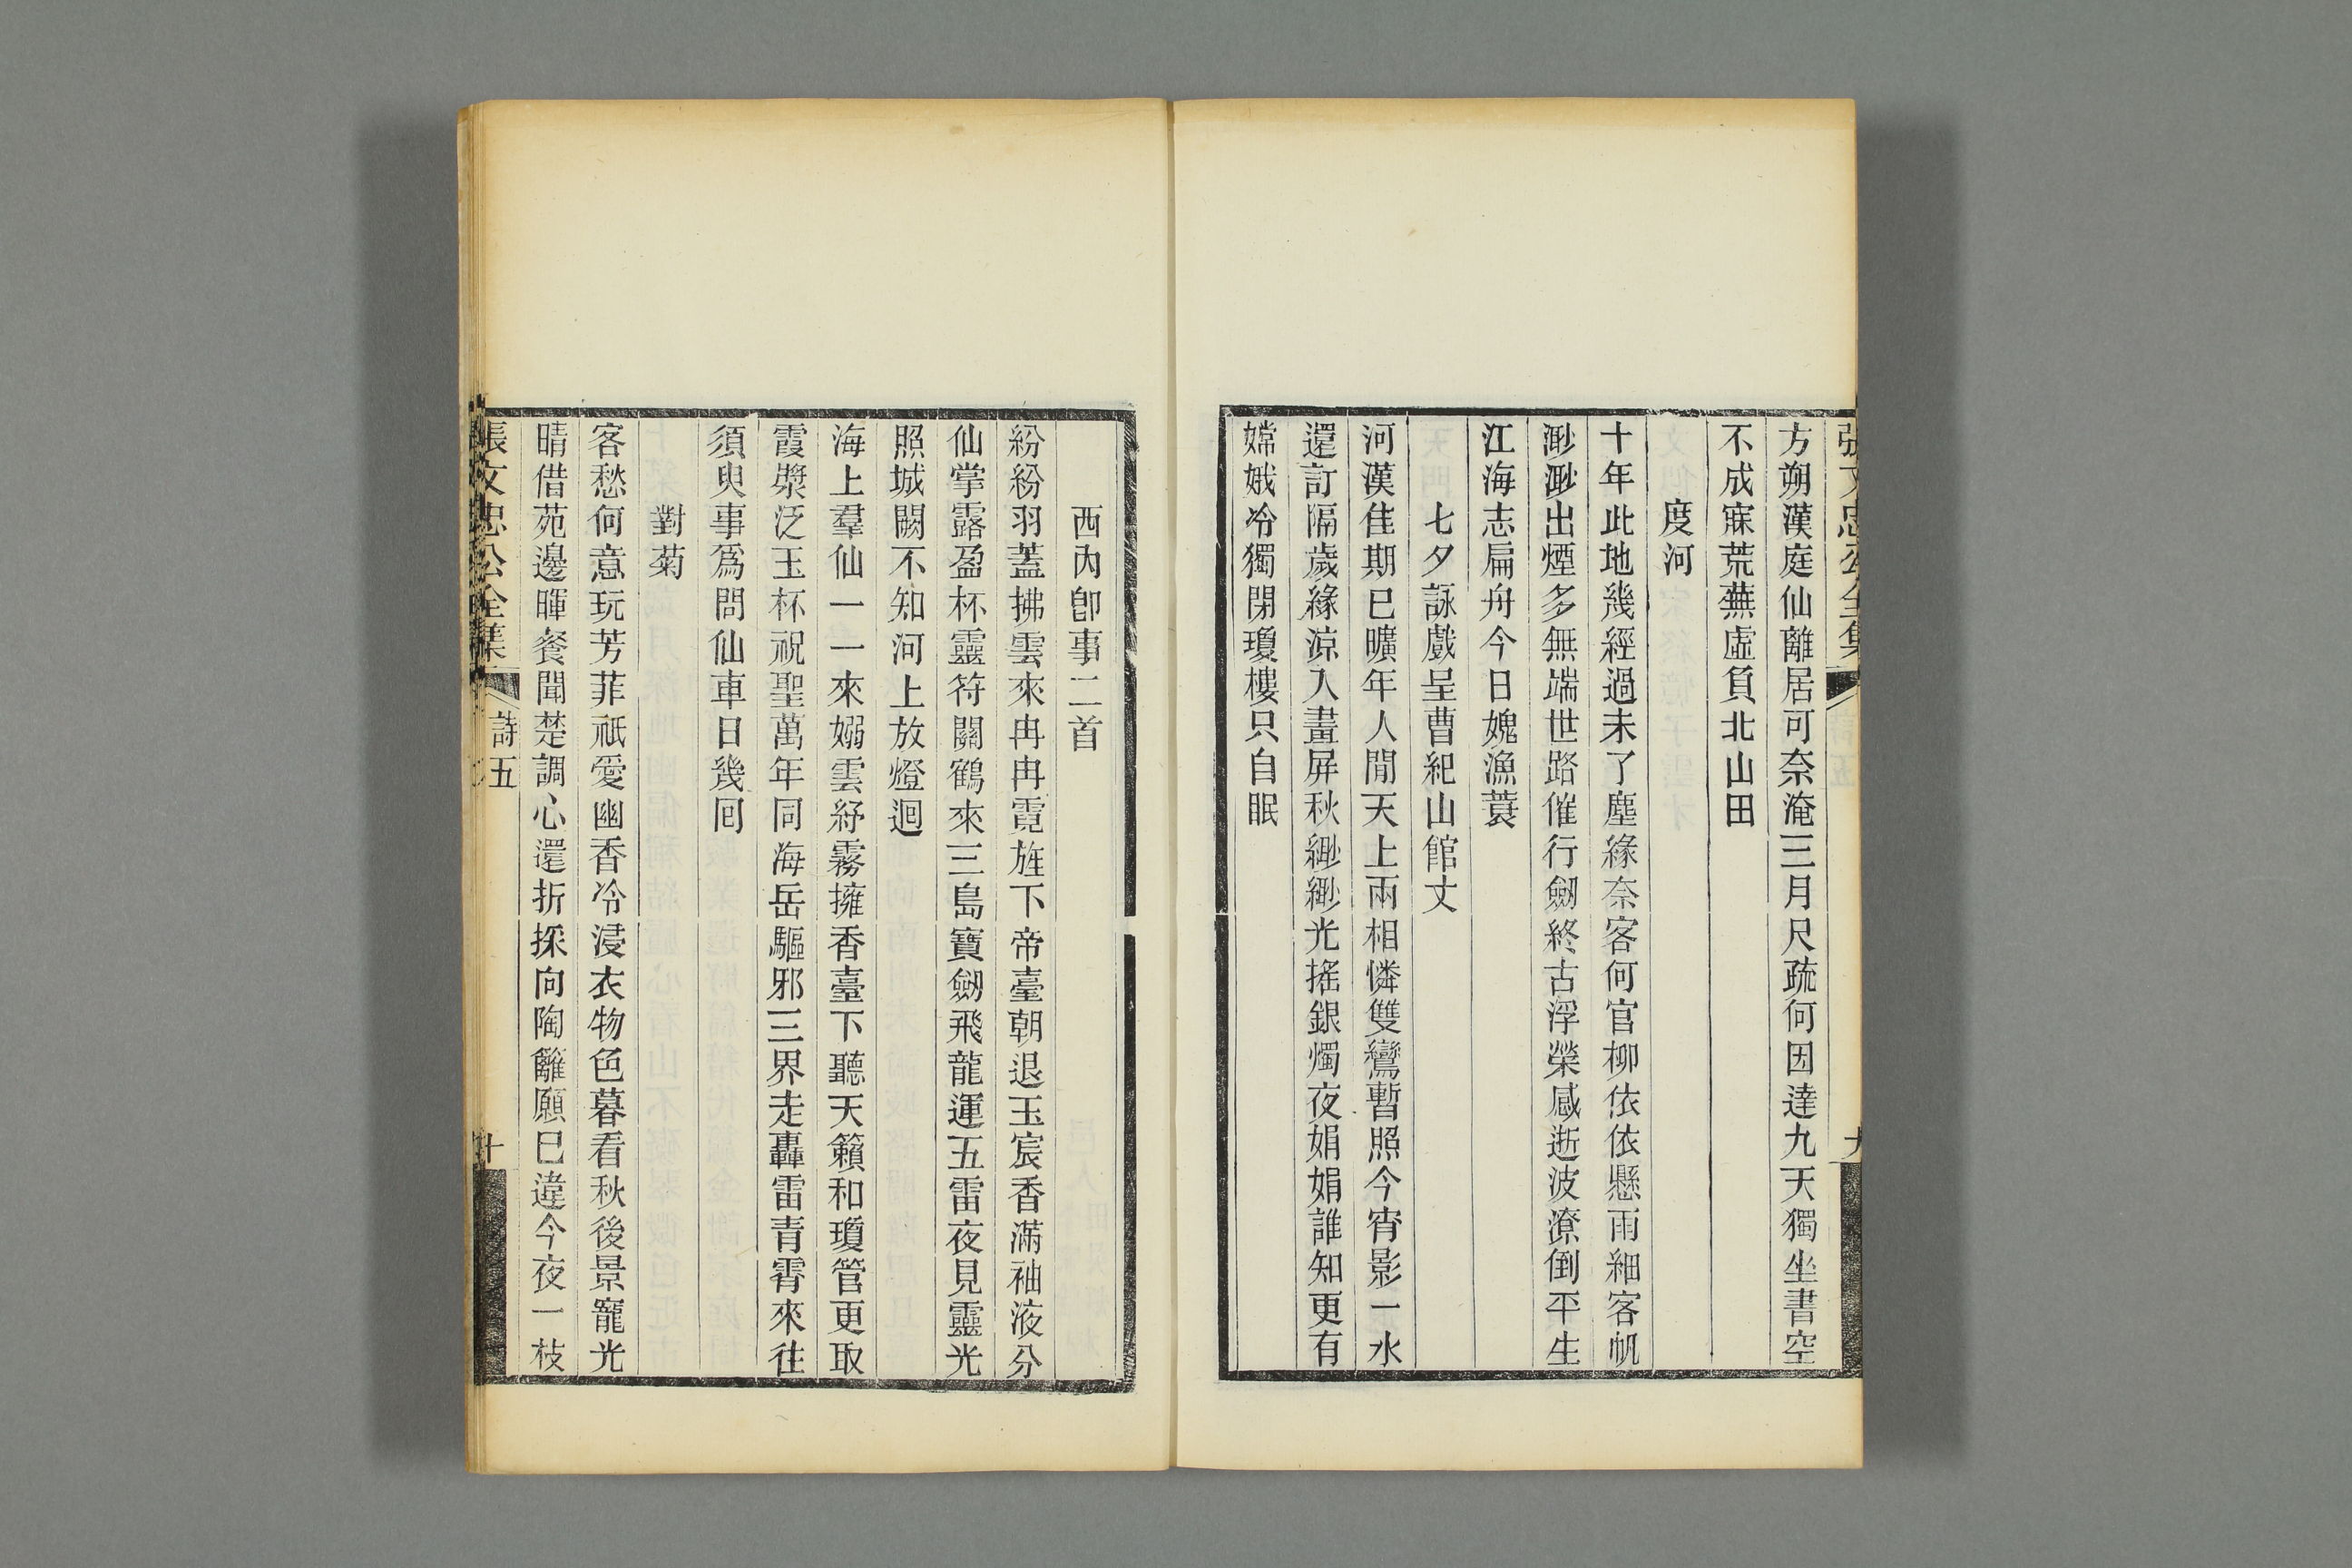 張文忠公全集 詩五 九
方朔漢庭仙離居可奈淹三月尺疏何因達九天獨坐書空
不成寐荒蕪虛負北山田
度河
十年此地幾經過未了塵緣奈客何官柳依依懸雨細客帆
渺渺出煙多無端世路催行劒終古浮榮感逝波潦倒平生
江海志扁舟今日媿漁蓑
七夕詠戲呈曹紀山館丈
河漢佳期已曠年人閒天上兩相憐雙鸞暫照今宵影一水
還訂隔歲緣涼入畫屏秋緲緲光搖銀燭夜娟娟誰知更有
嫦娥冷獨閉瓊樓只自眠
西內卽事二首
紛紛羽蓋拂雲來冉冉霓旌下帝臺朝退玉宸香滿袖液分
仙掌露盈杯靈符關鶴來三島寶劒飛龍運五雷夜見靈光
照城闕不知河上放燈迴
海上羣仙一一來嫋雲紓霧擁香臺下聽天籟和瓊管更取
霞漿泛玉杯祝聖萬年同海岳驅邪三界走轟雷青霄來往
須臾事爲問仙車日幾囘
對菊
客愁何意玩芳菲祇愛幽香冷浸衣物色暮看秋後景寵光
晴借苑邊暉餐聞楚調心還折採向陶籬願巳違今夜一枝
張文忠公全集 詩五 十